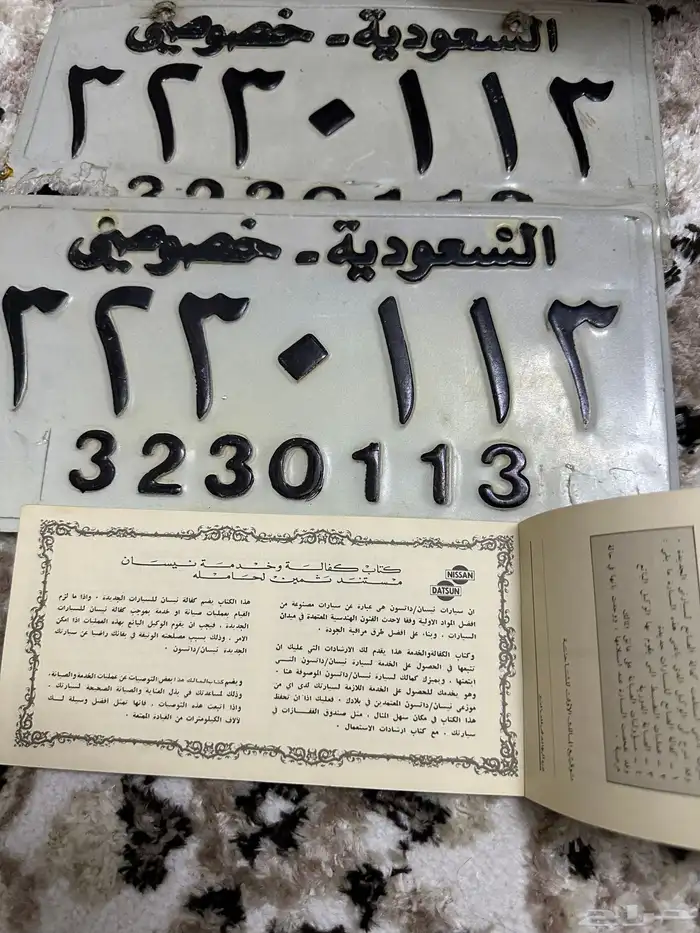 السعودية - خصوصي
٣٢٣٠١١٣
3230113
السعودية - خصوصي
٣٢٣٠١١٣
3230113
كتاب كفالة وخدمة نيسان
مستند تثمين لحامله
NISSAN
DATSUN
ان سيارات نيسان/داتسون هي عبارة عن سيارات مصنوعة من
افضل المواد الاولية وفقا لاحدث الفنون الهندسية المعتمدة في ميدان
السيارات ، وبناء على افضل طرق مراقبة الجودة .
وكتاب الكفالة والخدمة هذا يقدم لك الارشادات التي عليك ان
تتبعها في الحصول على الخدمة لسيارة نيسان/داتسون التي
ابتعتها ، ويميزك كمالك لسيارة نيسان/داتسون الموصوفة هنا .
وهو يخدمك للحصول على الخدمة اللازمة لسيارتك لدى اي من
موزعي نيسان/داتسون المعتمدين في بلادك . فعليك اذا ان تحفظ
هذا الكتاب في مكان سهل المنال ، مثل صندوق القفازات في
سيارتك ، مع كتاب ارشادات الاستعمال .
هذا الكتاب يضم كفالة نيسان للسيارات الجديدة . واذا ما لزم
القيام بعمليات صيانة او خدمة بموجب كفالة نيسان للسيارات
الجديدة ، فيجب ان يقوم الوكيل البائع بهذه العمليات اذا امكن
الامر . وذلك بسبب مصلحته الوثيقة في بقائك راضيا عن سيارتك
الجديدة نيسان/داتسون .
ويضم كتاب المالك هذا بعض التوصيات عن عمليات الخدمة والصيانة ،
وذلك لمساعدتك في بذل العناية والصيانة الصحيحة لسيارتك .
واذا اتبعت هذه التوصيات ، فانها تمثل افضل وسيلة لك
لآلاف الكيلومترات من القيادة الممتعة .
حراج